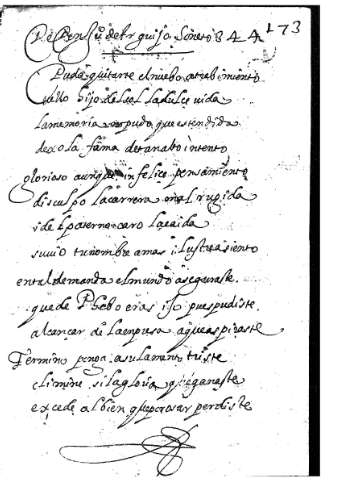 De Don Juº de Arguijo Soneto 844 173
Pudo quitarte el nuebo atrebimiento
bello hijo del sol la dulce vida
la memoria no pudo que estendida
dexo la fama de tan alto intento
glorioso aunque infelice pensamiento
disculpo la carrera mal rugida
i del paterno caro la caida
suvio tu nombre a mas ilustre asiento
en tal demanda el mundo aseguraste
que de Phebo eras ijo pues pudiste
alcançar de la enpresa a que aspiraste
Termino ponga a su lamento triste
climine si la gloria q̃ ganaste
excede al bien que por osar perdiste